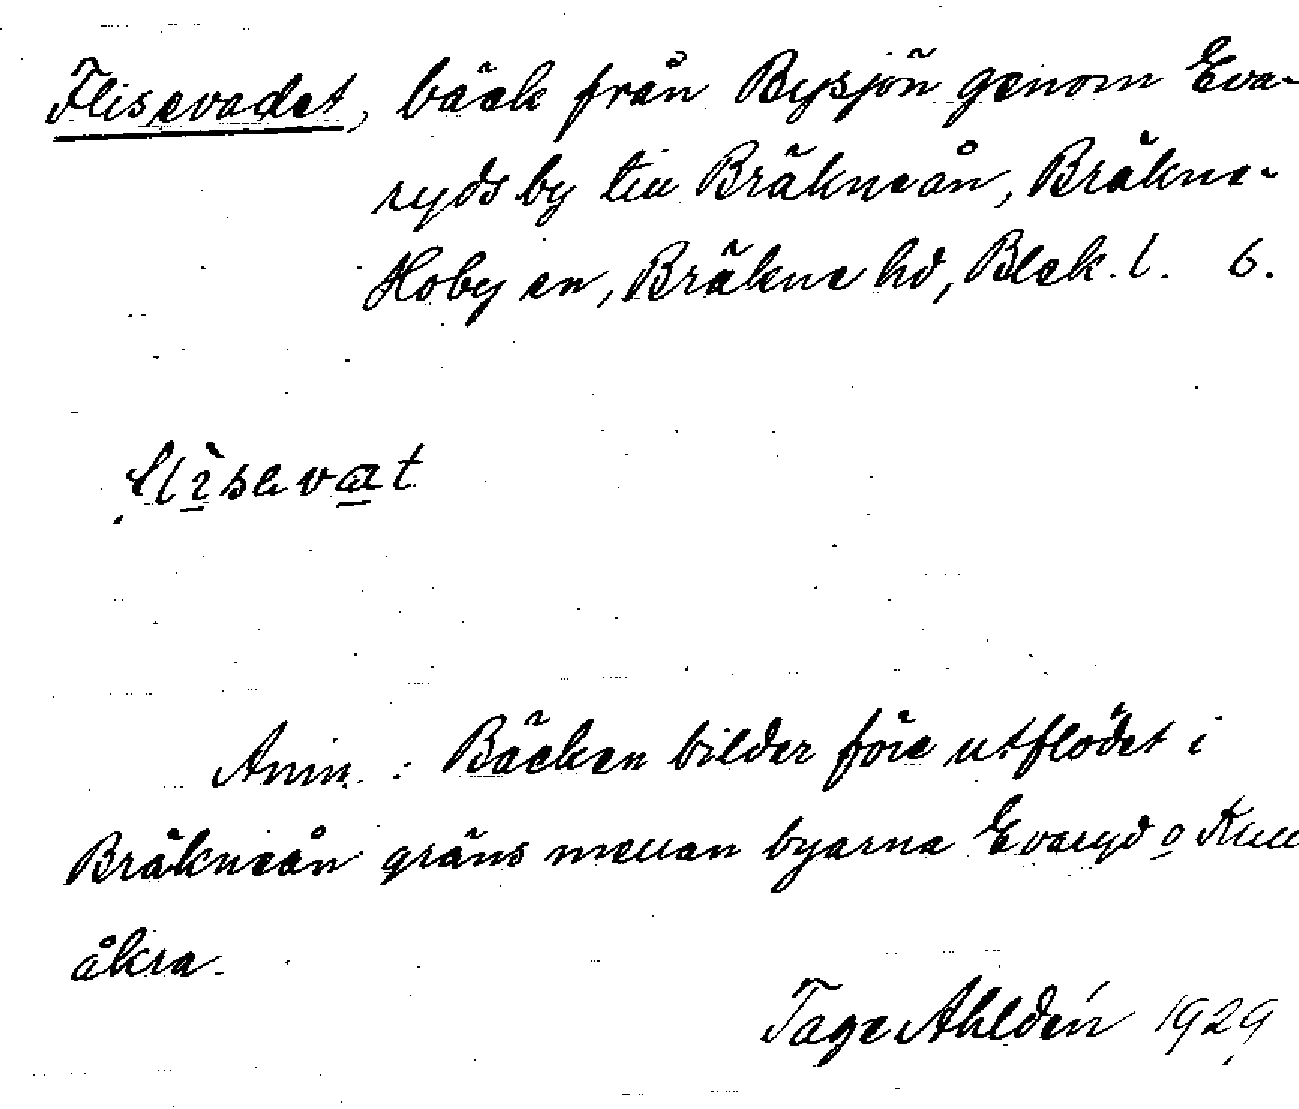 Flisevadet, bäck från Bysjön genom Eva-
ryds by till Bräkneån, Bräkne-
Hoby sn, Bräkne hd, Blek. l. 6.
Anm. : Bäcken bilder före utflödet i
Bräkneån gräns mellan byarna Evaryd o
åkra.
Tage Ahldén 1929